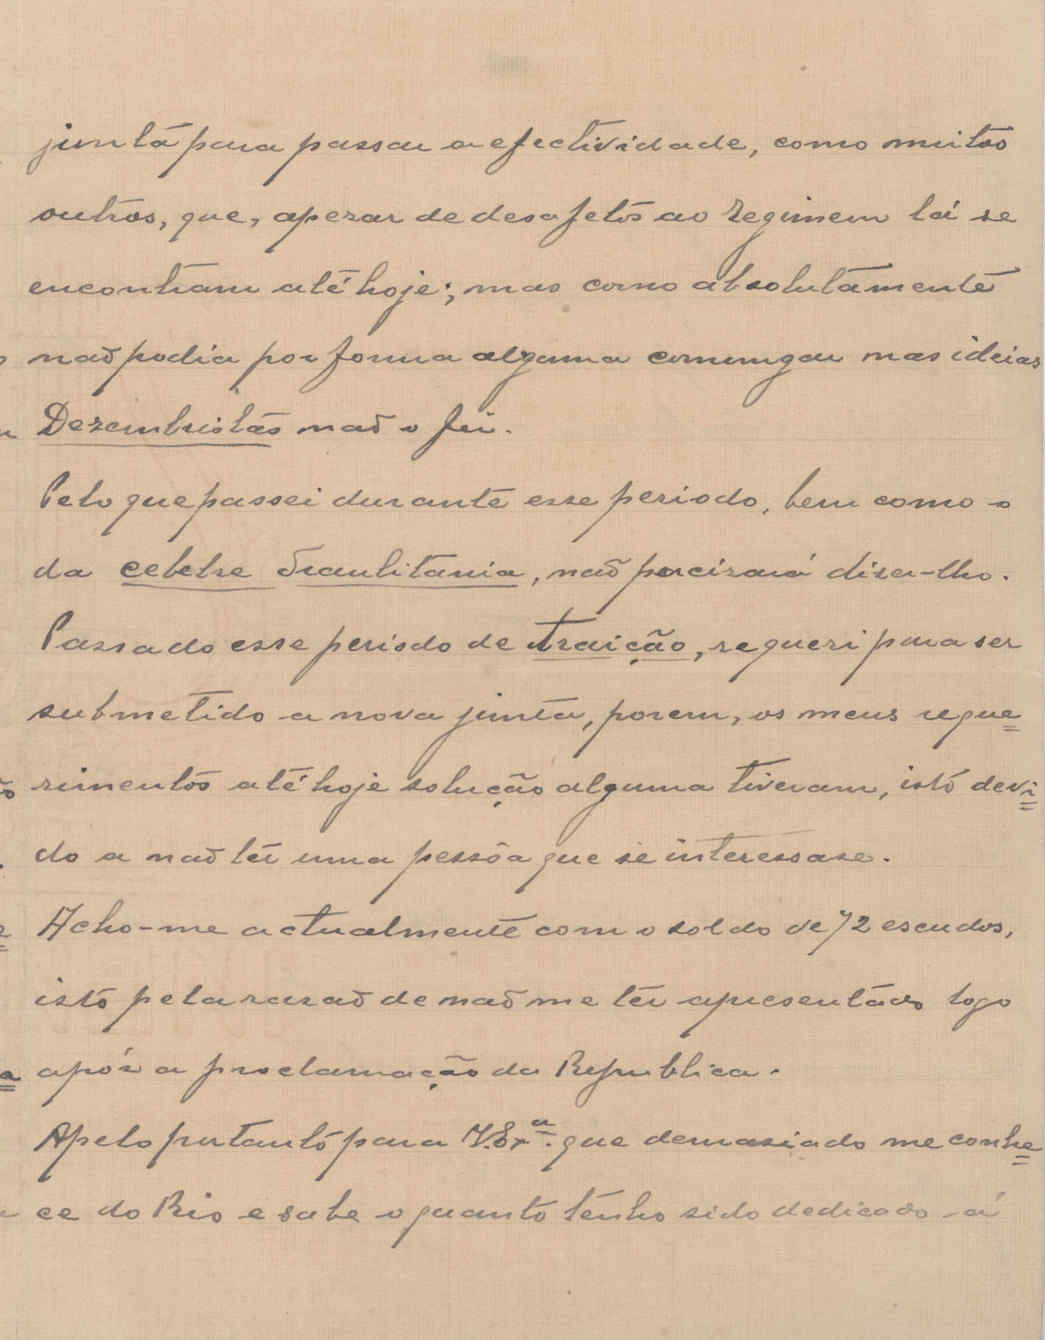 juntá para passar a efectividade, como muitos
outros, que, apezar de desafetos ao regimem lá se
encontram até hoje; mas como absolutamente
naõ podia por forma alguma comungar nas ideias
Dezembristas naõ o fiz.
Pelo que passei durante esse periodo, bem como o
da celebre Traulitania, naõ percizará dizer-lho.
Passado esse periodo de traição, requeri para ser
submetido a nova junta, porem, os meus reque=
rimentos até hoje solução alguma tiveram, istó devi=
do a naõ têr uma pessôa que se interessase.
Acho-me actualmente com o soldo de 72 escudos,
istó pela razaõ de naõ me têr apresentado logo
após a proclamação da Republica.
Apelo purtanto para V. Exª. que demasiado me conhe=
ce do Rio e sabe o quanto tenho sido dedicado á